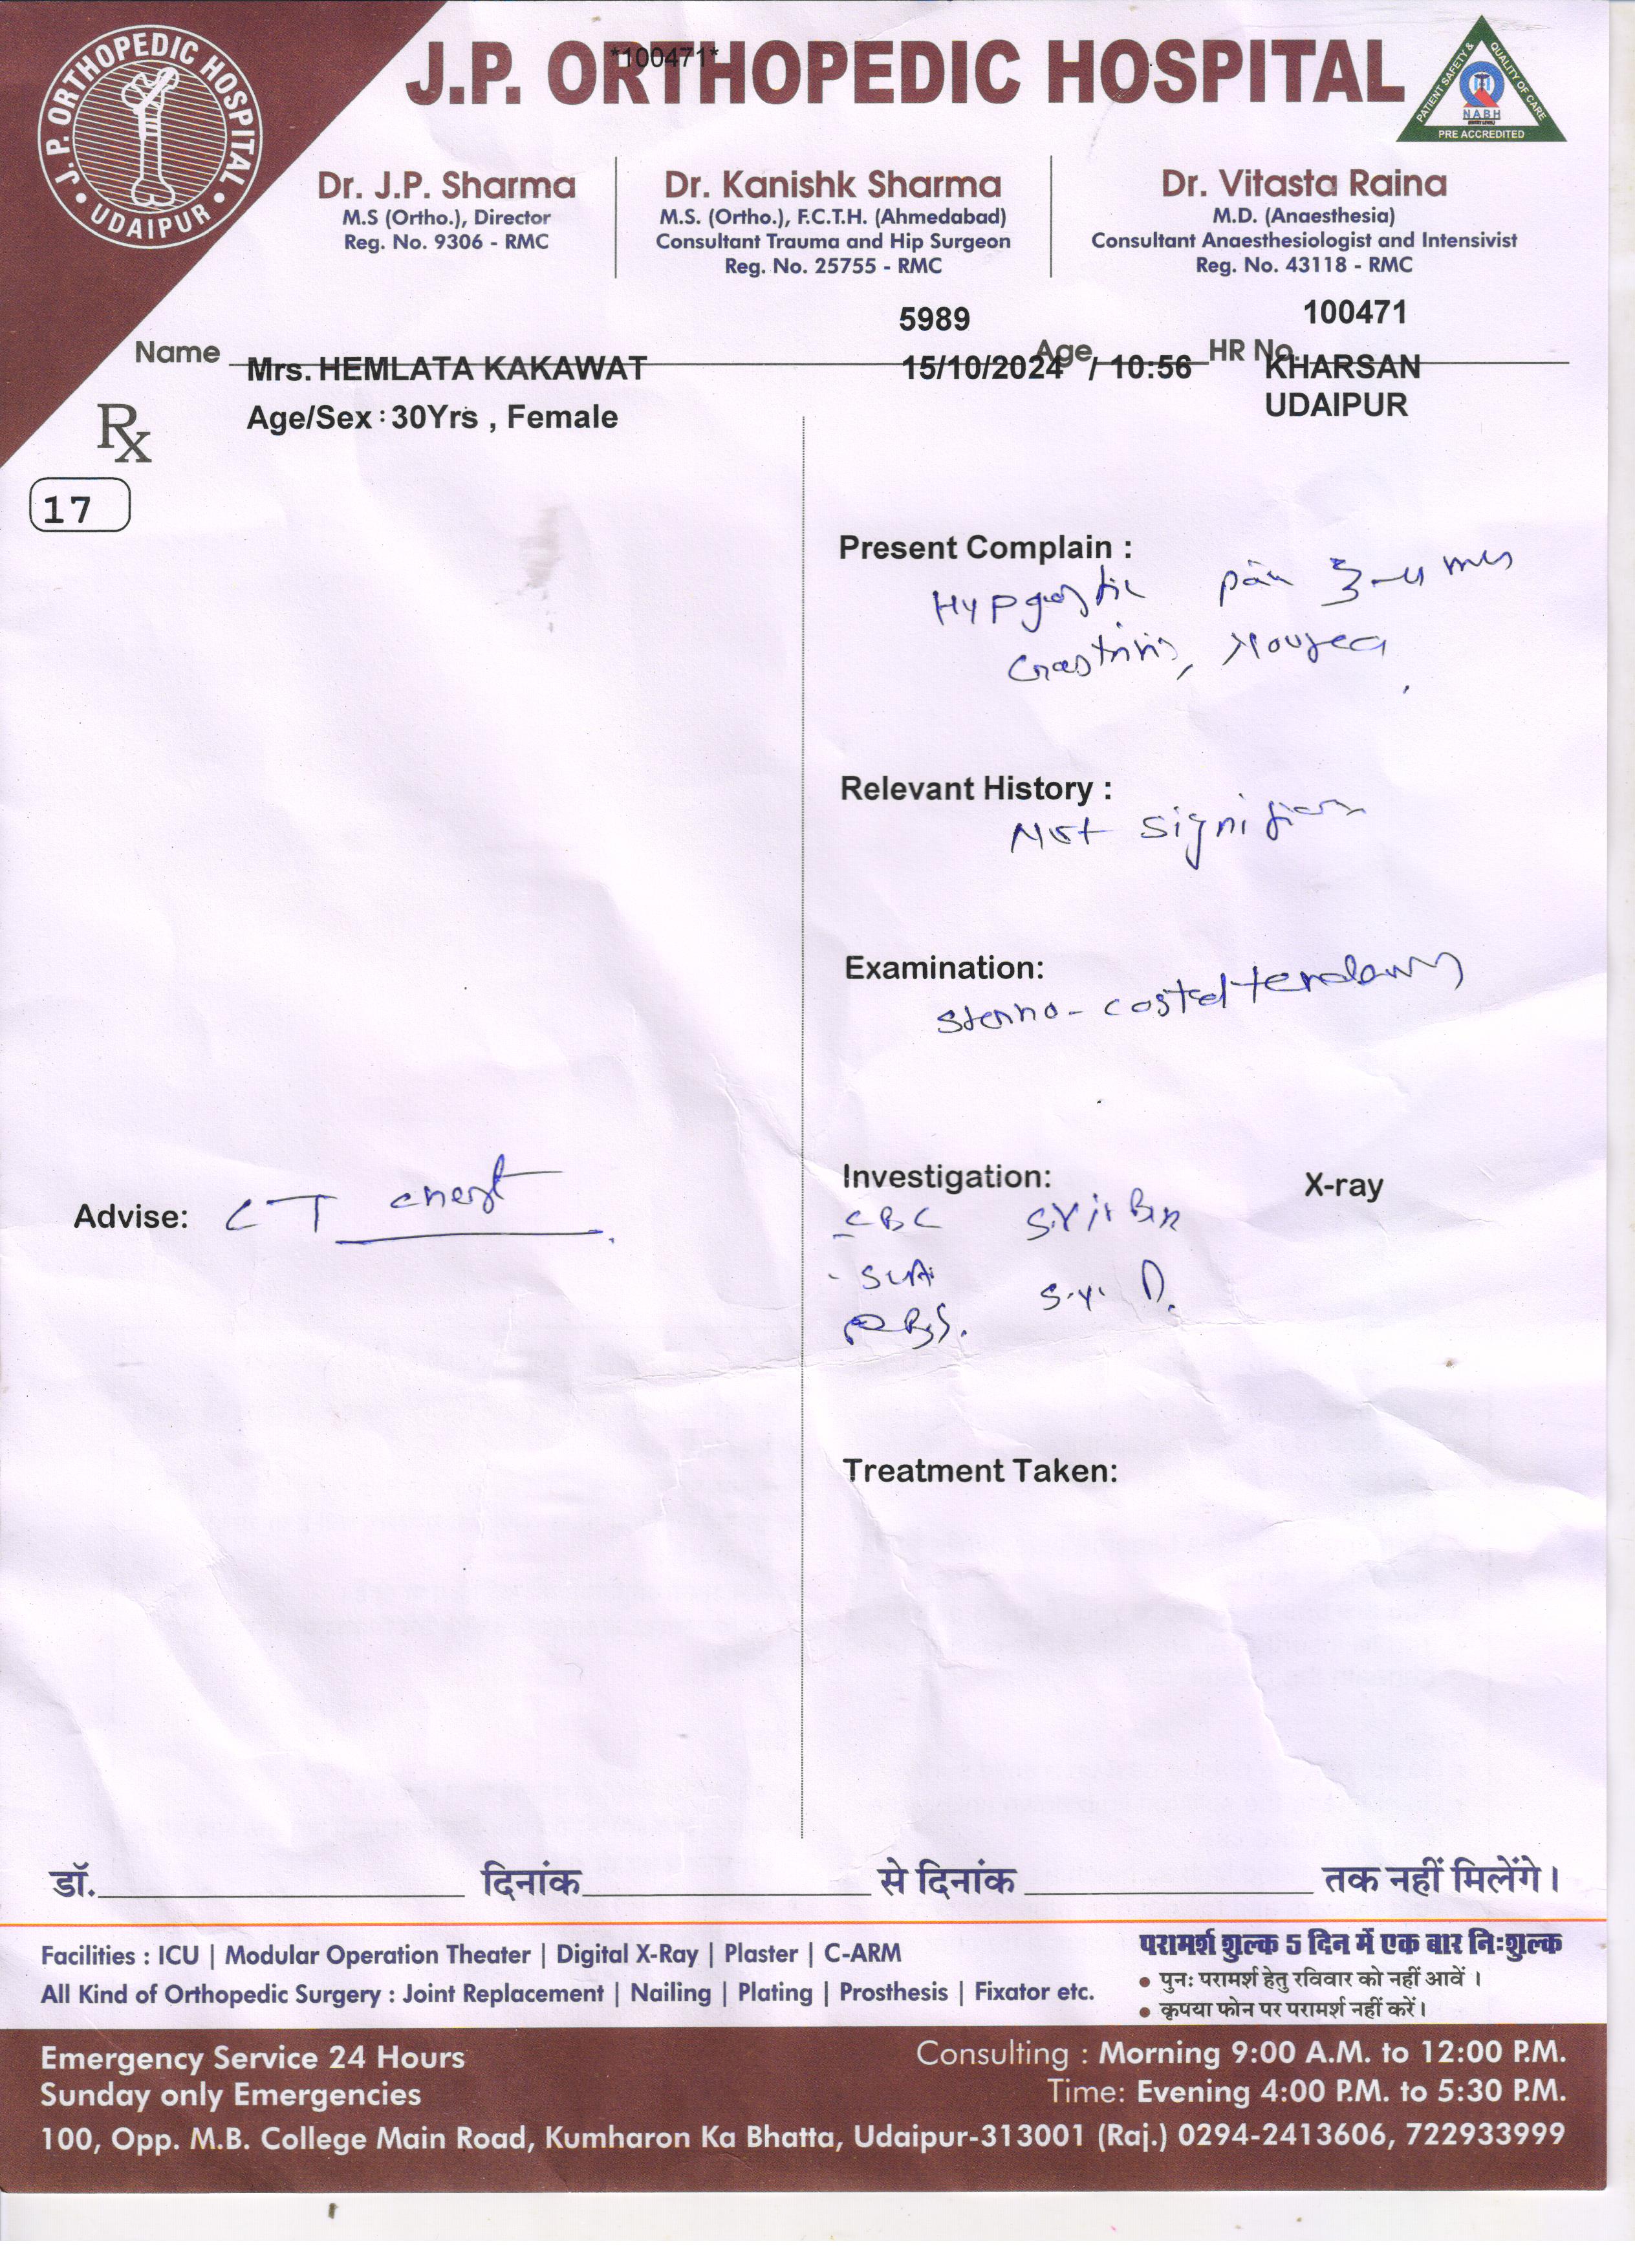 J.P. ORTHOPEDIC HOSPITAL
*100471*
J. P. ORTHOPEDIC HOSPITAL
• UDAIPUR •
PATIENT SAFETY & QUALITY OF CARE
NABH
PRE ACCREDITED
Dr. J.P. Sharma
M.S (Ortho.), Director
Reg. No. 9306 - RMC
Dr. Kanishk Sharma
M.S. (Ortho.), F.C.T.H. (Ahmedabad)
Consultant Trauma and Hip Surgeon
Reg. No. 25755 - RMC
Dr. Vitasta Raina
M.D. (Anaesthesia)
Consultant Anaesthesiologist and Intensivist
Reg. No. 43118 - RMC
5989 100471
Name Mrs. HEMLATA KAKAWAT 15/10/2024 / 10:56 Age HR No. KHARSAN
Age/Sex : 30Yrs , Female UDAIPUR
Rx
17
Present Complain :
pain 3-4
Gastritis, Nousea
Relevant History :
Not
Examination:
Sterno-costal
Investigation: X-ray
CBC
D.
RBS.
Advise: CT chest
Treatment Taken:
डॉ. दिनांक से दिनांक तक नहीं मिलेंगे।
Facilities : ICU | Modular Operation Theater | Digital X-Ray | Plaster | C-ARM
All Kind of Orthopedic Surgery : Joint Replacement | Nailing | Plating | Prosthesis | Fixator etc.
परामर्श शुल्क 5 दिन में एक बार निःशुल्क
• पुनः परामर्श हेतु रविवार को नहीं आवें ।
• कृपया फोन पर परामर्श नहीं करें।
Emergency Service 24 Hours
Sunday only Emergencies
Consulting : Morning 9:00 A.M. to 12:00 P.M.
Time: Evening 4:00 P.M. to 5:30 P.M.
100, Opp. M.B. College Main Road, Kumharon Ka Bhatta, Udaipur-313001 (Raj.) 0294-2413606, 722933999